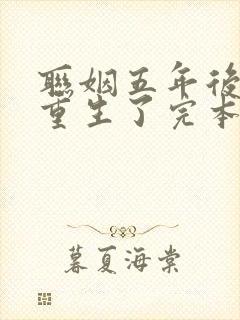 聯姻五年後
重生了完本
暮夏海棠